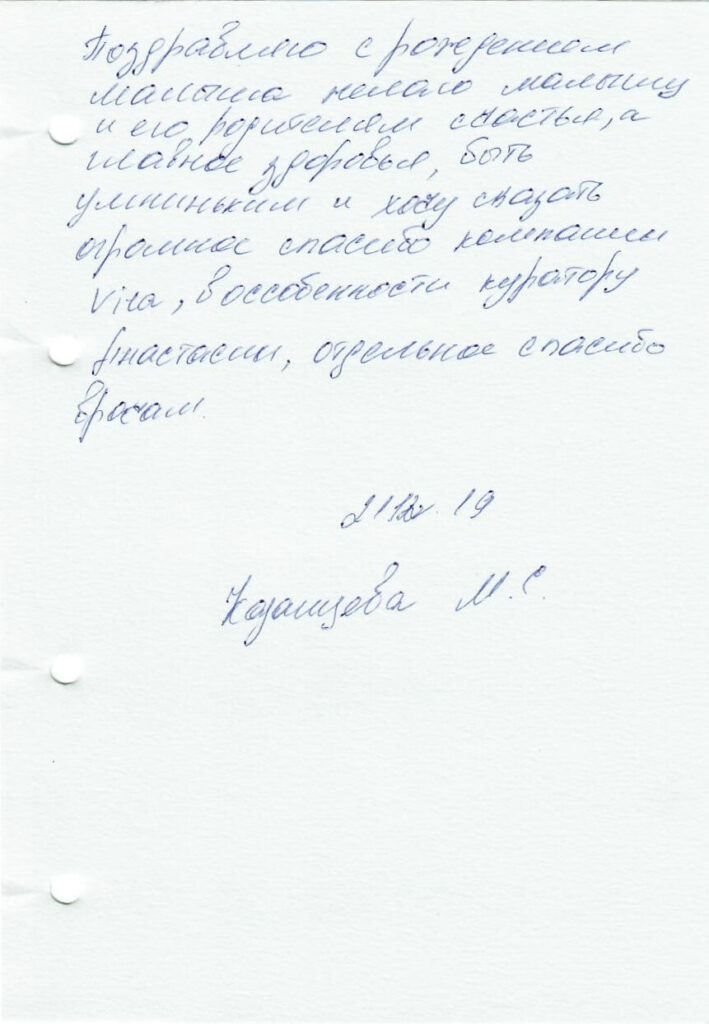 Поздравляю с рождением
малыша желаю малышу
и его родителям счастья, а
главное здоровья, быть
умниньким и хочу сказать
огромное спасибо компании
Vita, в оссобенности куратору
Анастасии, отдельное спасибо
врачам.
19
Казанцева М. С.